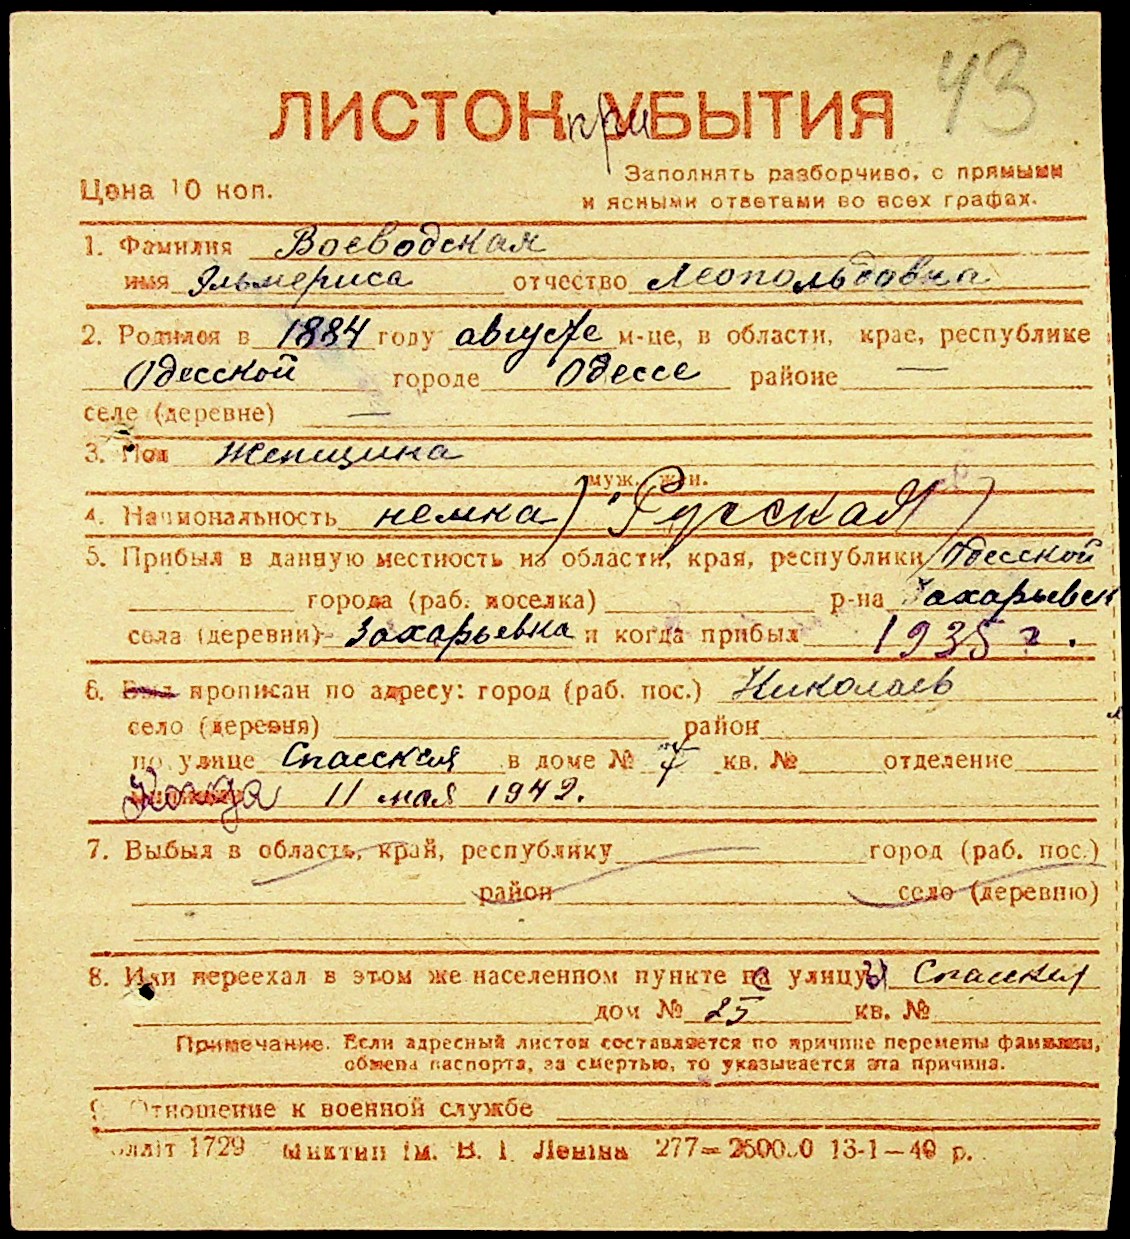 43
ЛИСТОК при УБЫТИЯ
Цена 10 коп.
Заполнять разборчиво, с прямыми
и ясными ответами во всех графах.
1. Фамилия Воеводская
имя Эльмериса отчество Леопольдовна
2. Родился в 1884 году августе м-це, в области, крае, республике
Одесской городе Одессе районе —
селе (деревне) —
3. Пол Женщина
муж. жен.
4. Национальность немка) Русская)
5. Прибыл в данную местность из области, края, республики Одесской
города (раб. поселка) р-на Захарьевск
села (деревни) Захарьевка и когда прибыл 1935 г.
6. Был прописан по адресу: город (раб. пос.) Николаев
село (деревня) район
по улице Спасская в доме № 7 кв. № отделение
Когда 11 мая 1942.
7. Выбыл в область, край, республику город (раб. пос.)
район село (деревню)
8. Или переехал в этом же населенном пункте с улицы Спасская
дом № 25 кв. №
Примечание. Если адресный листок составляется по причине перемены фамилии,
обмена паспорта, за смертью, то указывается эта причина.
9. Отношение к военной службе
1729 ім. В. І. Леніна 277— 13-1—40 р.